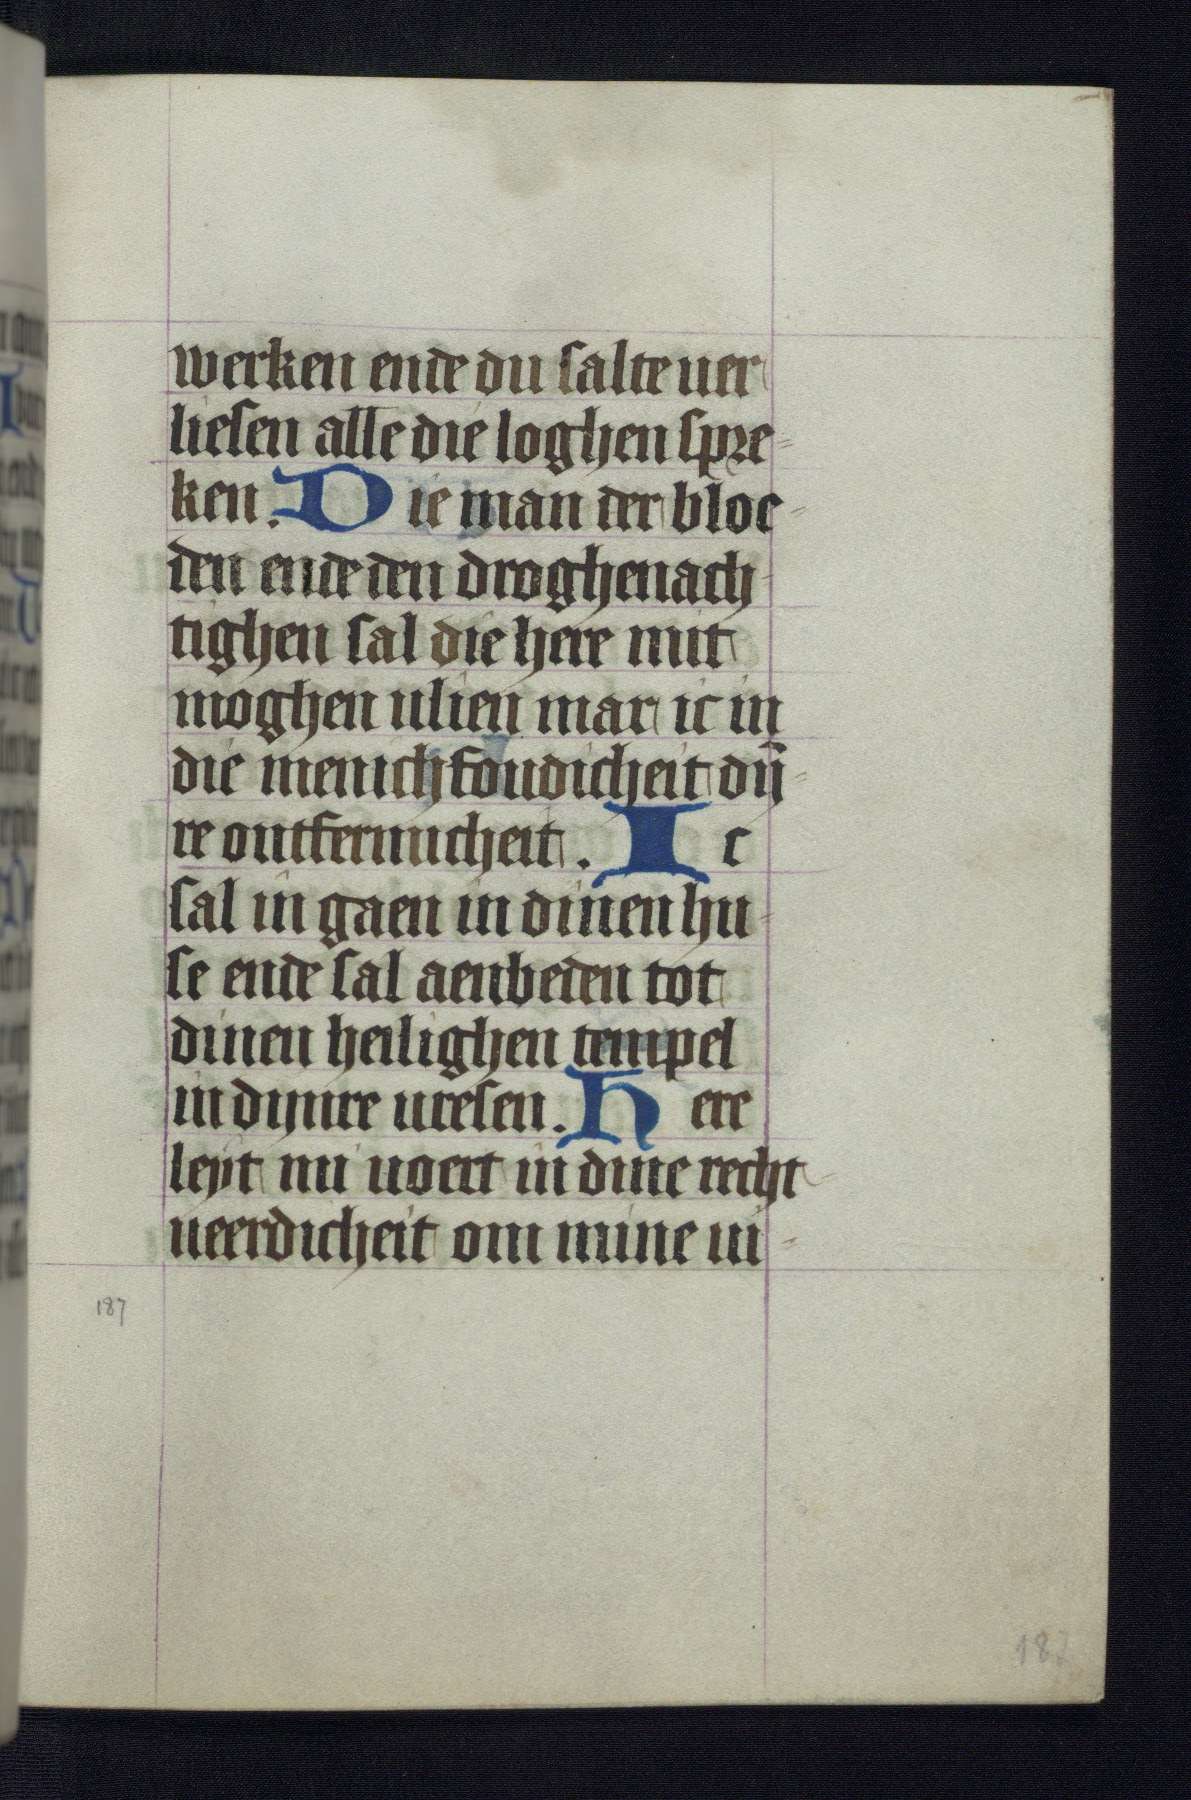 werken ende du salte uer
liesen alle die loghen spre
ken. Die man der bloe
den ende den droghenach
tighen sal die here mit
moghen ulien mar ic in
die menichfoudicheit dij̄
re ontfermicheit. Ic
sal in gaen in dinen hu
se ende sal aenbeden tot
dinen heilighen tempel
in dijnre uresen. Here
leyt mi uoert in dine recht
ueerdicheit om mine ui
187
187